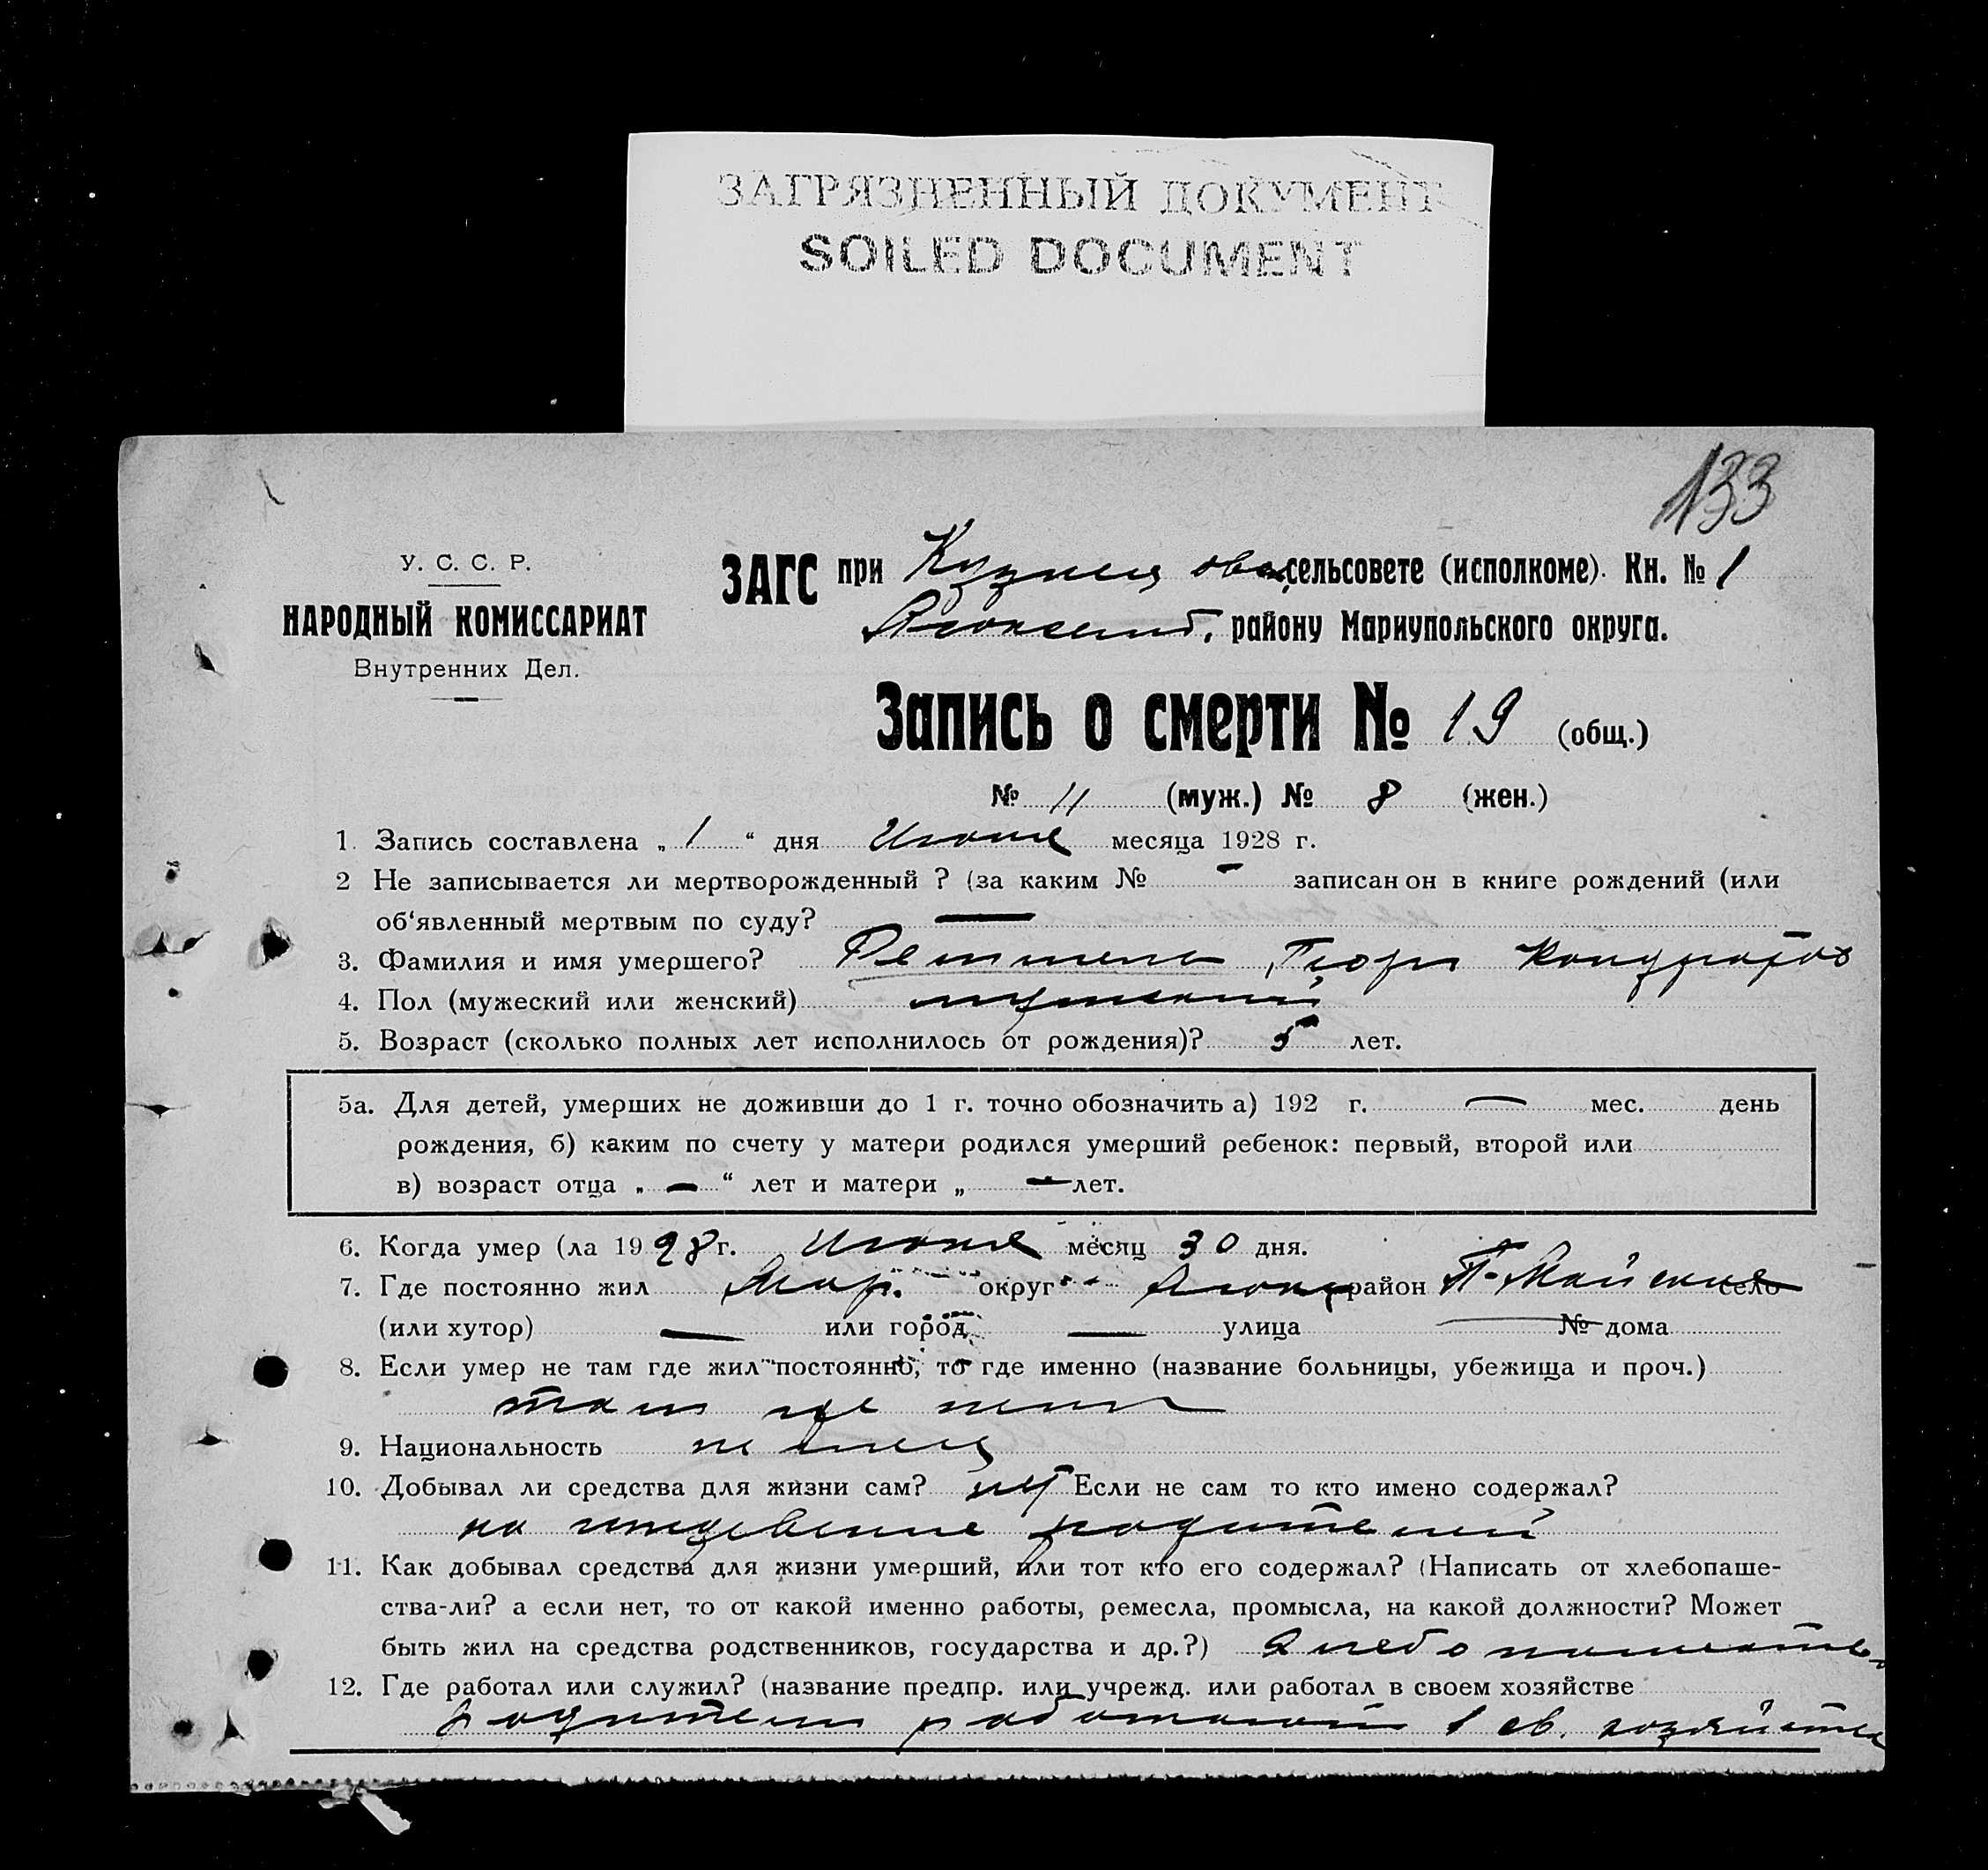 ЗАГРЯЗНЕННЫЙ ДОКУМЕНТ
SOILED DOCUMENT
133
У. С. С. Р.
НАРОДНЫЙ КОМИССАРИАТ
Внутренних Дел.
ЗАГС при сельсовете (исполкоме). Кн. № 1
району Мариупольского округа.
Запись о смерти № 19 (общ.)
№ 11 (муж.) № 8 (жен.)
1. Запись составлена „ 1 “ дня месяца 1928 г.
2 Не записывается ли мертворожденный ? (за каким № — записан он в книге рождений (или
об‘явленный мертвым по суду? —
3. Фамилия и имя умершего? Георг
4. Пол (мужеский или женский) мужеский
5. Возраст (сколько полных лет исполнилось от рождения)? 5 лет.
5а. Для детей, умерших не доживши до 1 г. точно обозначить а) 192 г. — мес. день
рождения, б) каким по счету у матери родился умерший ребенок: первый, второй или
в) возраст отца „ — “ лет и матери „ — лет.
6. Когда умер (ла 1928 г. месяц 30 дня.
7. Где постоянно жил Мар. округ район П-Майское село
(или хутор) — или город — улица — № дома
8. Если умер не там где жил постоянно, то где именно (название больницы, убежища и проч.)
там где жил
9. Национальность немец
10. Добывал ли средства для жизни сам? нет Если не сам то кто имено содержал?
на иждевение родителей
11. Как добывал средства для жизни умерший, или тот кто его содержал? (Написать от хлебопаше-
ства-ли? а если нет, то от какой именно работы, ремесла, промысла, на какой должности? Может
быть жил на средства родственников, государства и др.?)
12. Где работал или служил? (название предпр. или учрежд. или работал в своем хозяйстве
родители работают в св. хозяйстве